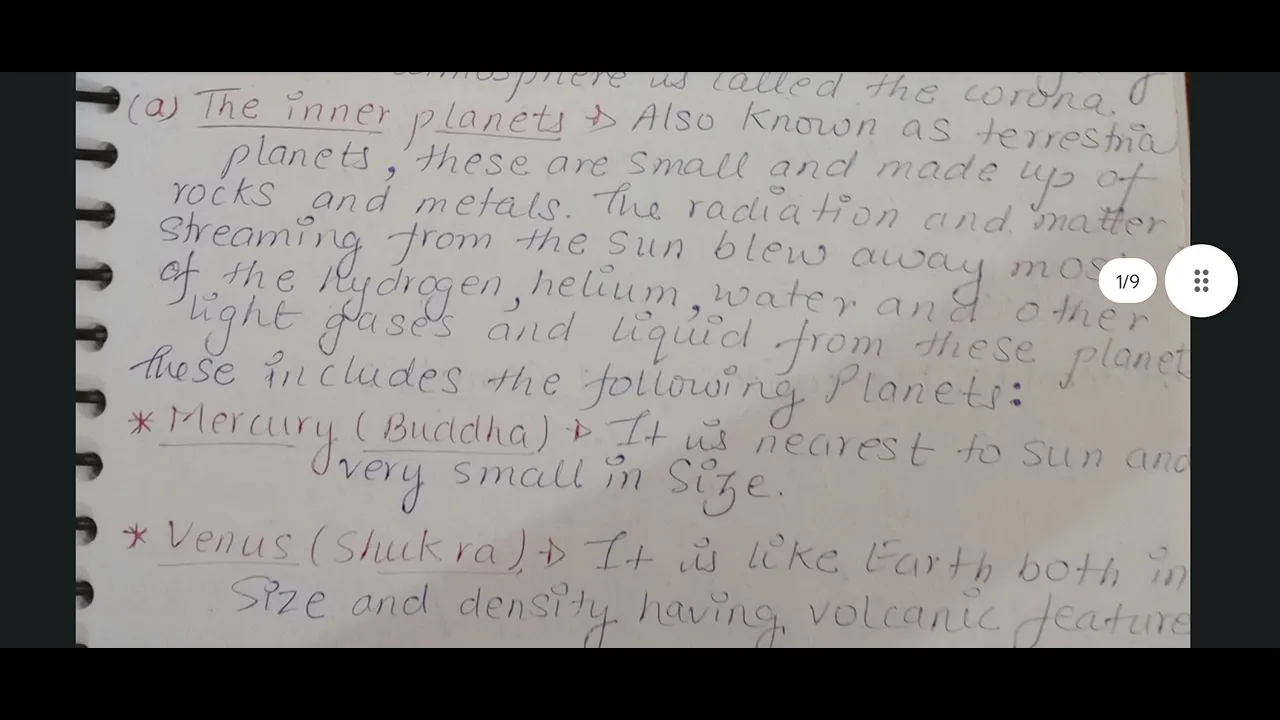 atmosphere is called the corona.
(a) The inner planets → Also Known as terrestria
planets, these are small and made up of
rocks and metals. The radiation and matter
streaming from the sun blew away mos
of the hydrogen, helium, water and other
light gases and liquid from these planet
these includes the following Planets:
1/9
* Mercury (Buddha) → It is nearest to sun and
very small in Size.
* Venus (Shukra) → It is like Earth both in
Size and density having volcanic feature